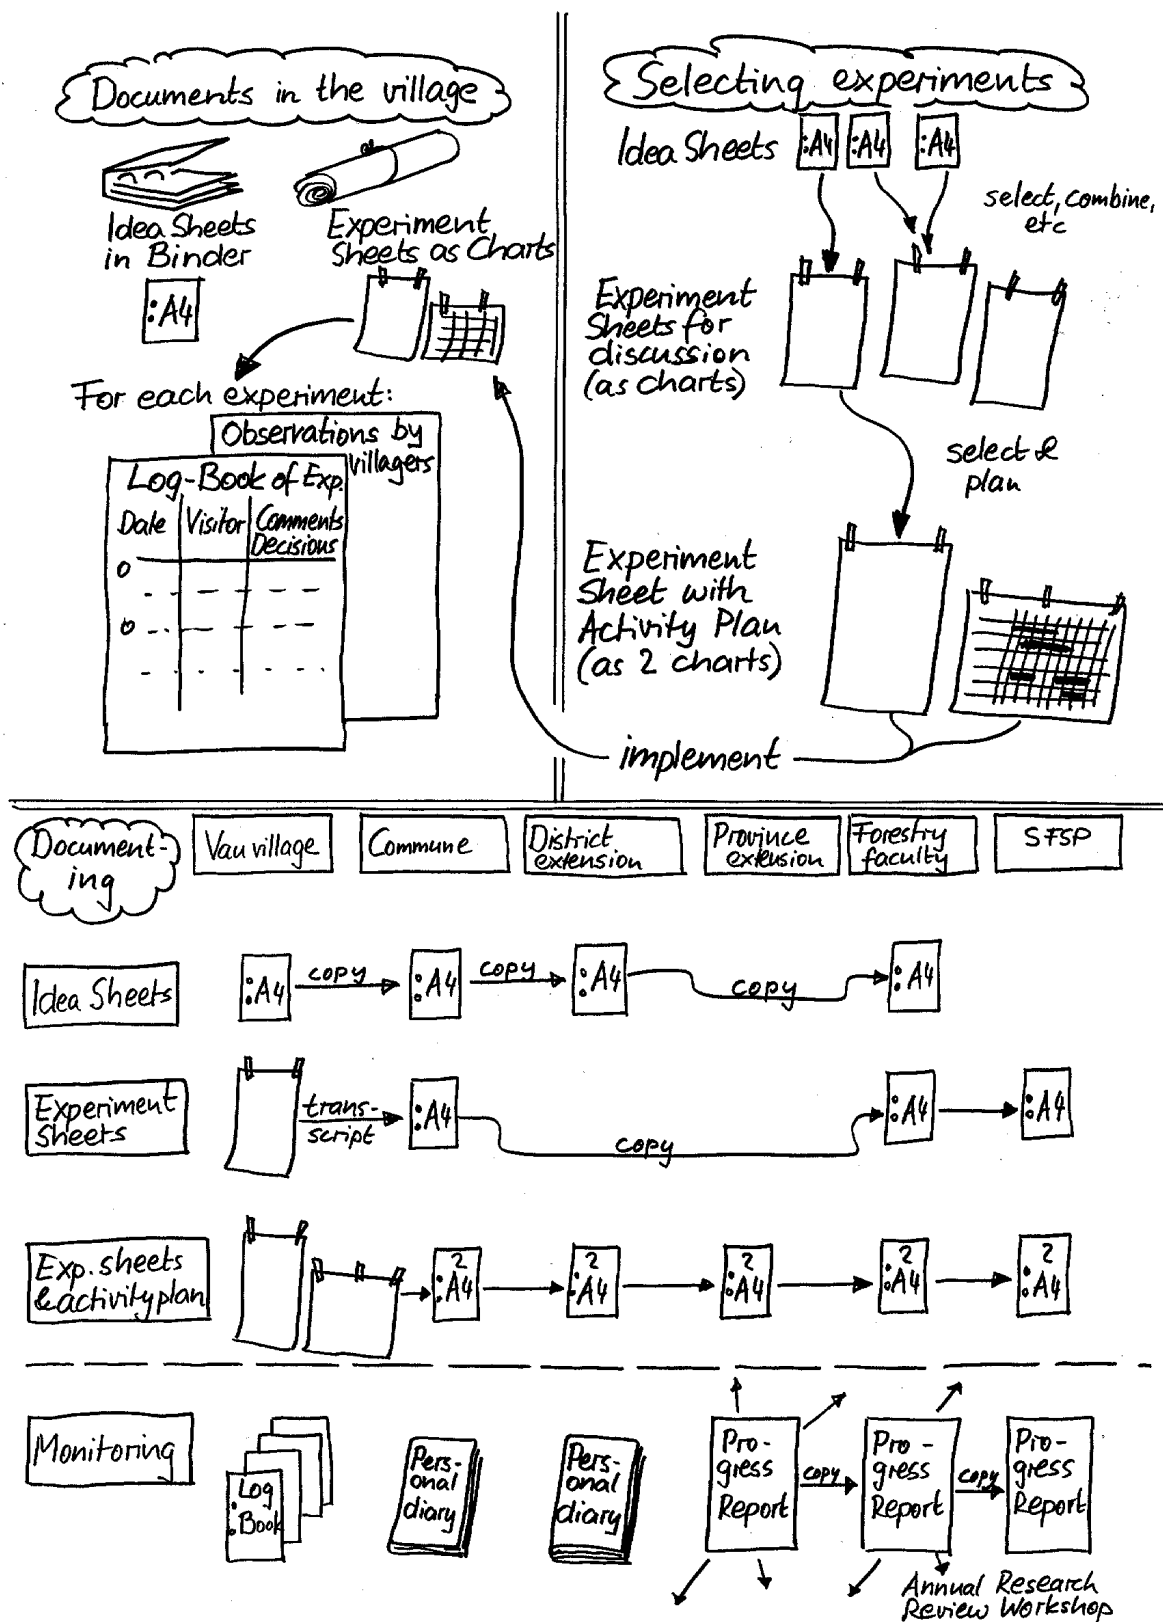 Documents in the village
Idea Sheets
in Binder
:A4
Experiment
Sheets as Charts
For each experiment:
Observations by
villagers
Log-Book of Exp.
Date Visitor Comments
Decisions
Selecting experiments
Idea Sheets :A4 :A4 :A4
select, combine,
etc
Experiment
Sheets for
discussion
(as charts)
select &
plan
Experiment
Sheet with
Activity Plan
(as 2 charts)
implement
Document-
ing
Vau village
Commune
District
extension
Province
extension
Forestry
faculty
SFSP
Idea Sheets
:A4 copy :A4 copy :A4 copy :A4
Experiment
Sheets
trans-
script
:A4 copy :A4 :A4
Exp. sheets
& activity plan
2 2 2 2 2
:A4 :A4 :A4 :A4 :A4
Monitoring
Log
Book
Pers-
onal
diary
Pers-
onal
diary
Pro-
gress
Report
copy
Pro-
gress
Report
copy
Pro-
gress
Report
Annual Research
Review Workshop